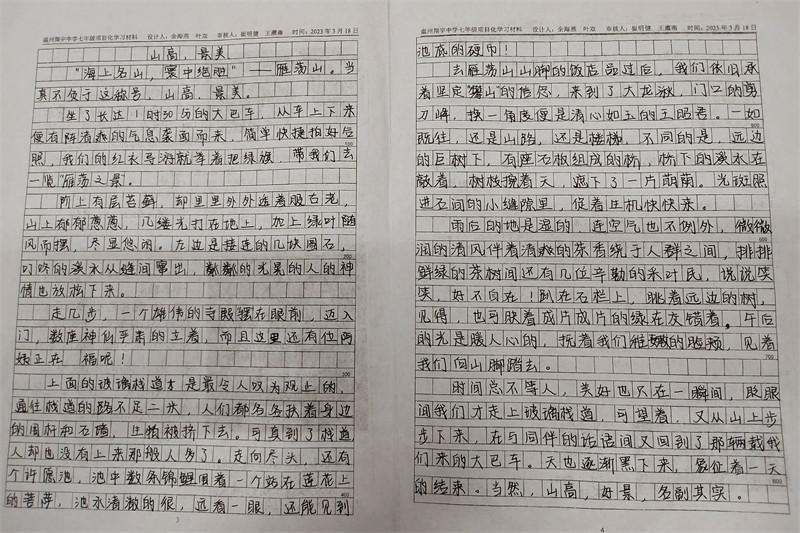 温州翔宇中学七年级项目化学习材料 设计人：余海燕 叶双 审核人：崔明健 王露南 时间：2023年3月18日
山高，景美
“海上名山，寰中绝胜”——雁荡山。当
真不负于这称号，山高，景美。
坐了长达1时30多的大巴车，从车上下来
便有阵清爽的气息袭面而来，简单快捷拍好合
照，我们的红衣导游就举着把绿旗，带我们去
一览“雁荡之景”。
阶上有层苔藓，却里里外外透着股古老，
山上郁郁葱葱，几缕光打在地上，加上绿叶随
风而摆，尽显悠闲。左边是接连的几块圆石，
叮咚的溪水从缝间窜出，粼粼的光晃的人的神
情也放松下来。
走几步，一个雄伟的寺殿摆在眼前，迈入
门，数座神仙手肃的立着，而且这里还有位阿
姨正在 福呢！
上面的玻璃栈道才是最令人叹为观止的，
通往栈道的路不足二米，人们都各各扶着身边
的围杆和石墙，生怕被挤下去。可真到了栈道，
人却也没有上来那般人多了。走向尽头，还有
个许愿池，池中数条锦鲤围着一个站在莲花上
的菩萨，池水清澈的很，远看一眼，还能见到
3
温州翔宇中学七年级项目化学习材料 设计人：余海燕 叶双 审核人：崔明健 王露南 时间：2023年3月18日
池底的硬币！
去雁荡山山脚的饭店品过后，我们依旧承
着坚定“爬山”的信念，来到了大龙湫，门口的剪
刀峰，换一角度便是清心如玉的王昭君。一如
既往，还是山路，还是楼梯，不同的是，远边
的巨树下，有座石板组成的桥，桥下的溪水在
敲着，树枝挽着天，遮下了一片萌荫。光斑照
进石间的小缝隙里，促着生机快快来。
雨后的地是湿的，连空气也不例外，微微
润的清风伴着清爽的茶香绕于人群之间，排排
鲜绿的茶树间还有几位辛勤的采叶民，说说笑
笑，好不自在！趴在石栏上，眺着远边的树，
见得，也可映着成片成片的绿在灰错着。午后
的光是暖人心的，抚着我们稚嫩的脸颊，见着
我们向山脚踏去。
时间总不等人，美好也只在一瞬间，眨眼
间我们才走上玻璃栈道，可望着，又从山上步
步下来，在与同伴的话语间又回到了那辆载我
们来的大巴车。天也逐渐黑下来，象征着一天
的结束。当然，山高，好景，名副其实。
4